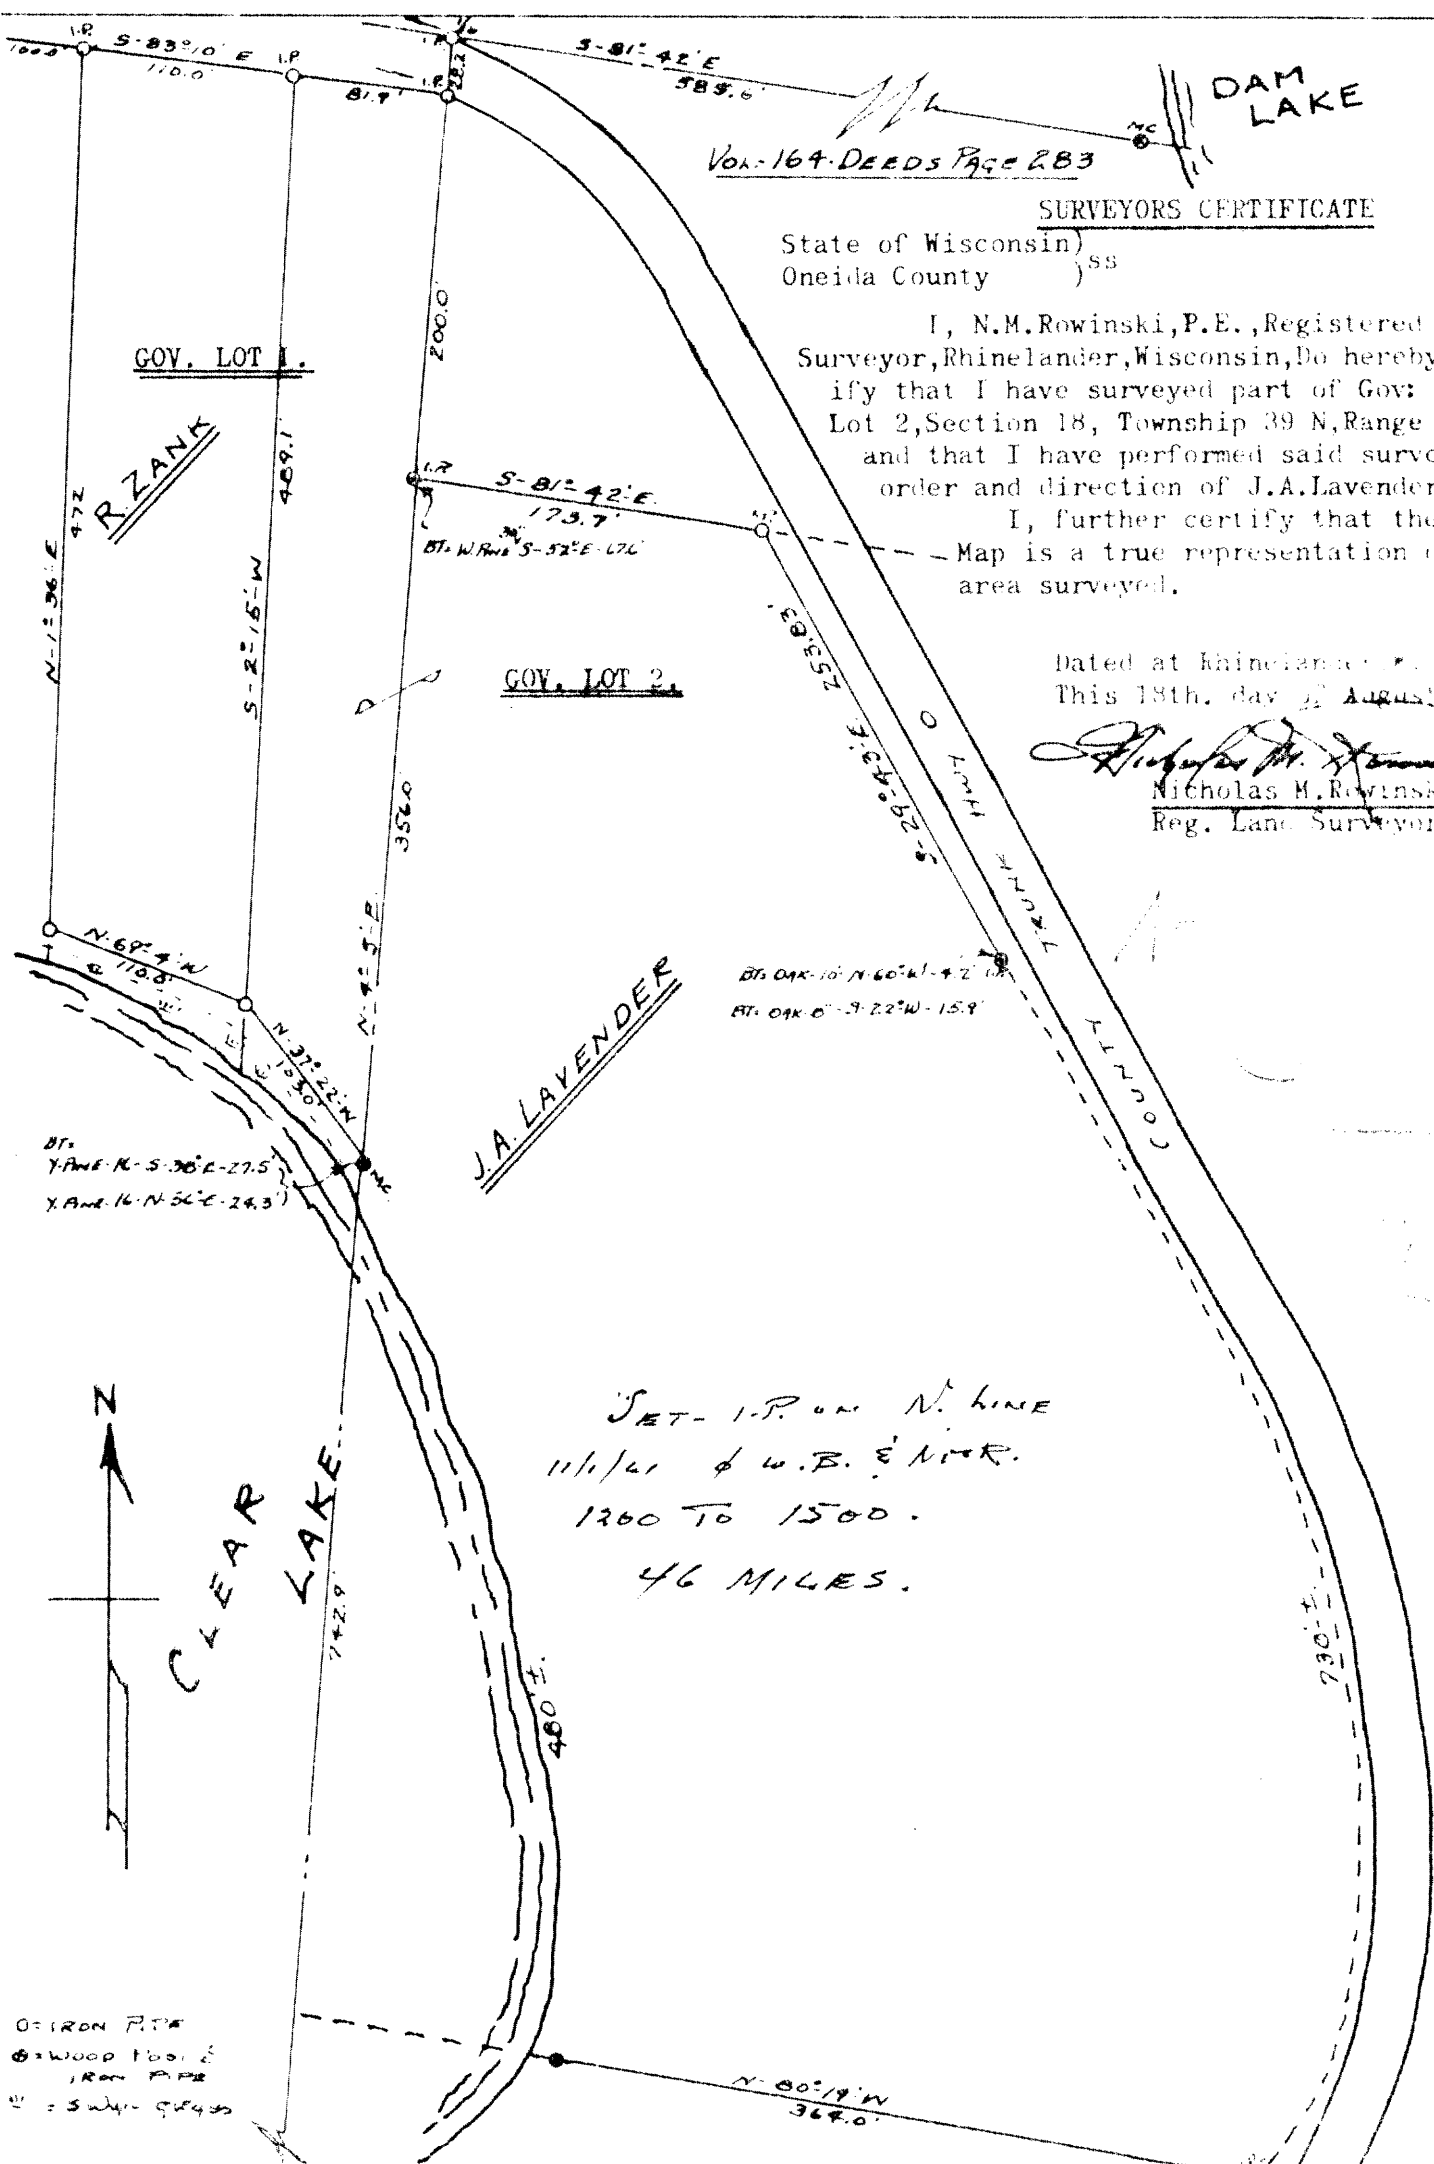 100.0'
I.P.
S-83°10' E
110.0'
I.P.
81.9'
I.P.
I.P.
28.2
S-81°-42' E
585.6'
MC
DAM
LAKE
VOL-164-DEEDS PAGE 283
SURVEYORS CERTIFICATE
State of Wisconsin)
Oneida County )ss
I, N.M.Rowinski,P.E.,Registered
Surveyor,Rhinelander,Wisconsin,Do hereby
ify that I have surveyed part of Gov:
Lot 2,Section 18, Township 39 N,Range
and that I have performed said surve
order and direction of J.A.Lavender
I, further certify that the
Map is a true representation
area surveyed.
Dated at Rhinelander
This 18th. day of August
Nicholas M.Rowinsk
Reg. Land Surveyor
GOV. LOT 1.
R. ZANK
472
N-1°-36' E
489.1'
S-2°-15'-W
200.0'
I.P.
S-81°-42'-E.
173.7'
BT= W.PINE S-52°E-17.6'
GOV. LOT 2.
253.83'
S-29°-43'-E
356.0'
N-4°-5'-E
COUNTY TRUNK HWY O
N-69°-4'-W
110.0'
N-37°-22'-W
103.0'
MC
BT= OAK-10" N-60°-W-4.2'
BT= OAK-8"-S-22°W-15.9'
J.A. LAVENDER
BT=
Y.PINE-16-S-38°E-27.5'
Y.PINE-16-N-56°-E-24.3'
N
CLEAR
LAKE
742.9'
480'±
SET- I.P. ON N. LINE
11/1/61 W.B. & NMR.
1200 TO 1500.
46 MILES.
730'±
O=IRON PIPE
=WOOD POST &
IRON PIPE
N-80°-19'-W
364.0'